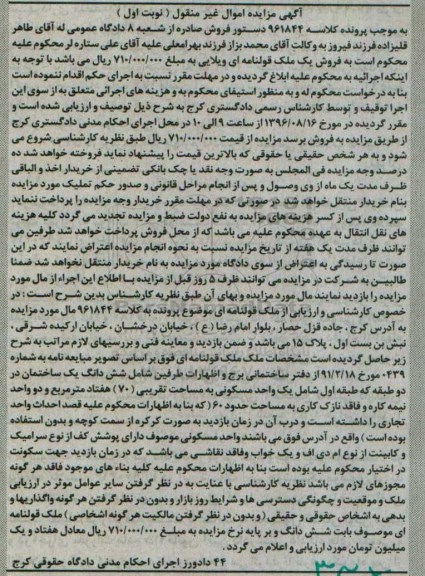 آگهی مزایده اموال غیر منقول ( نوبت اول )
به موجب پرونده کلاسه ۹۶۱۸۴۴ دستور فروش صادره از شعبه ۸ دادگاه عمومی له آقای طاهر
قلیزاده فرزند فیروز به وکالت آقای محمد بزاز فرزند بهرامعلی علیه آقای علی ستاره لر محکوم علیه
محکوم است به فروش یک ملک قولنامه ای ویلایی به مبلغ ۷۱۰/۰۰۰/۰۰۰ ریال می باشد با توجه به
اینکه اجرائیه به محکوم علیه ابلاغ گردیده و در مهلت مقرر نسبت به اجرای حکم اقدام ننموده است
بنا به درخواست محکوم له و به منظور استیفای محکوم به و هزینه های اجرائی متعلق به از سوی این
اجرا توقیف و توسط کارشناس رسمی دادگستری کرج به شرح ذیل توصیف و ارزیابی شده است و
مقرر گردیده در مورخ ۱۳۹۶/۰۸/۱۶ از ساعت ۹ الی ۱۰ در محل اجرای احکام مدنی دادگستری کرج
از طریق مزایده به فروش برسد مزایده از قیمت ۷۱۰/۰۰۰/۰۰۰ ریال طبق نظریه کارشناسی شروع می
شود و به هر شخص حقیقی یا حقوقی که بالاترین قیمت را پیشنهاد نماید فروخته خواهد شد ده
درصد وجه مزایده فی المجلس به صورت وجه نقد یا چک بانکی تضمینی از خریدار اخذ و الباقی
ظرف مدت یک ماه از وی وصول و پس از انجام مراحل قانونی و صدور حکم تملیک مورد مزایده
بنام خریدار منتقل خواهد شد در صورتی که در مهلت مقرر خریدار وجه مزایده را پرداخت ننماید
سپرده وی پس از کسر هزینه های مزایده به نفع دولت ضبط و مزایده تجدید می گردد کلیه هزینه
های نقل انتقال به عهده محکوم علیه می باشد که از محل فروش پرداخت خواهد شد طرفین می
توانند ظرف مدت یک هفته از تاریخ مزایده نسبت به نحوه انجام مزایده اعتراض نمایند که در این
صورت تا رسیدگی به اعتراض از سوی دادگاه مورد مزایده به نام خریدار منتقل نخواهد شد ضمنا
طالبین به شرکت در مزایده می توانند ظرف ۵ روز قبل از مزایده با اطلاع این اجراء از مال مورد
مزایده را بازدید نمایند مال مورد مزایده و بهای آن طبق نظریه کارشناس بدین شرح است : در
خصوص کارشناسی و ارزیابی از ملک قولنامه ای موضوع پرونده به کلاسه ۹۶۱۸۴۴ مال مورد مزایده
به آدرس کرج ، جاده قزل حصار ، بلوار امام رضا ( ع ) ، خیابان درخشان ، خیابان ارکیده شرقی ،
نبش بن بست اول ، پلاک ۱۵ می باشد و ضمن بازدید و معاینه فنی و بررسیهای لازم مراتب به شرح
زیر حاصل گردیده است مشخصات ملک ملک قولنامه ای فوق بر اساس تصویر مبایعه نامه به شماره
۰۴۳۹ مورخ ۹۱/۲/۱۸ از دفتر ساختمانی برج و اظهارات طرفین شامل شش دانگ یک ساختمان در
دو طبقه که طبقه اول شامل یک واحد مسکونی به مساحت تقریبی ( ۷۰ ) هفتاد مترمربع و دو واحد
نیمه کاره و فاقد نازک کاری به مساحت حدود ۶۰ ( که بنا به اظهارات محکوم علیه قصد احداث واحد
تجاری را داشته است و درب آن در زمان بازدید به صورت کرکره از سمت کوچه و بدون استفاده
بوده است ) واقع در آدرس فوق می باشند واحد مسکونی موصوف دارای پوشش کف از نوع سرامیک
و کابینت از نوع ام دی اف و یک خواب وفاقد نقاشی می باشد که در زمان بازدید جهت سکونت
در اختیار محکوم علیه بوده است بنا به اظهارات محکوم علیه کلیه بناء های موجود فاقد هر گونه
مجوزهای لازم می باشد نظریه کارشناسی با عنایت به در نظر گرفتن سایر عوامل موثر در ارزیابی
ملک و موقعیت و چگونگی دسترسی ها و شرایط روز بازار و بدون در نظر گرفتن هر گونه واگذاریها و
بدهی به اشخاص حقوقی و حقیقی ( و بدون در نظر گرفتن مالکیت هر گونه اشخاصی ) ملک قولنامه
ای موصوف بابت شش دانگ و بر پایه نرخ مزایده به مبلغ ۷۱۰/۰۰۰/۰۰۰ ریال معادل هفتاد و یک
میلیون تومان مورد ارزیابی و اعلام می گردد.
۴۴ دادورز اجرای احکام مدنی دادگاه حقوقی کرج